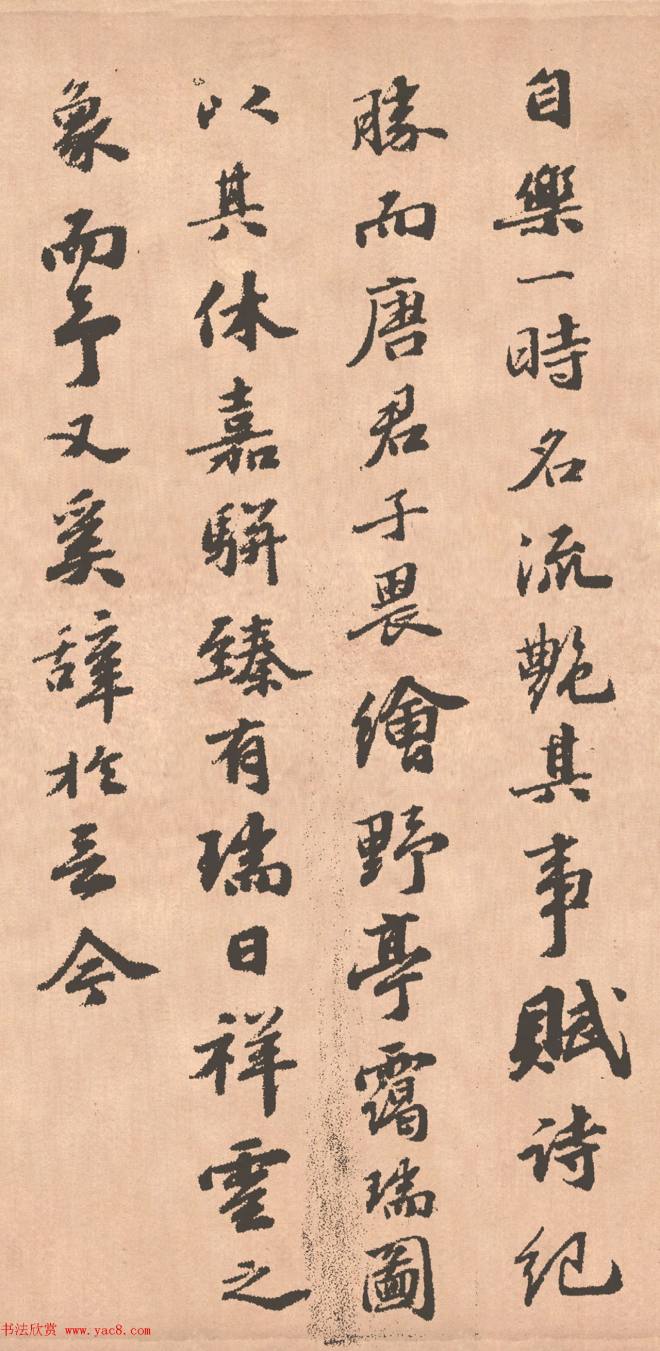 自樂一時名流艷其事賦詩紀
勝而唐君子畏繪野亭靄瑞圖
以其休嘉駢臻有瑞日祥雲之
象而予又奚辭於言今
书法欣赏 www.yac8.com